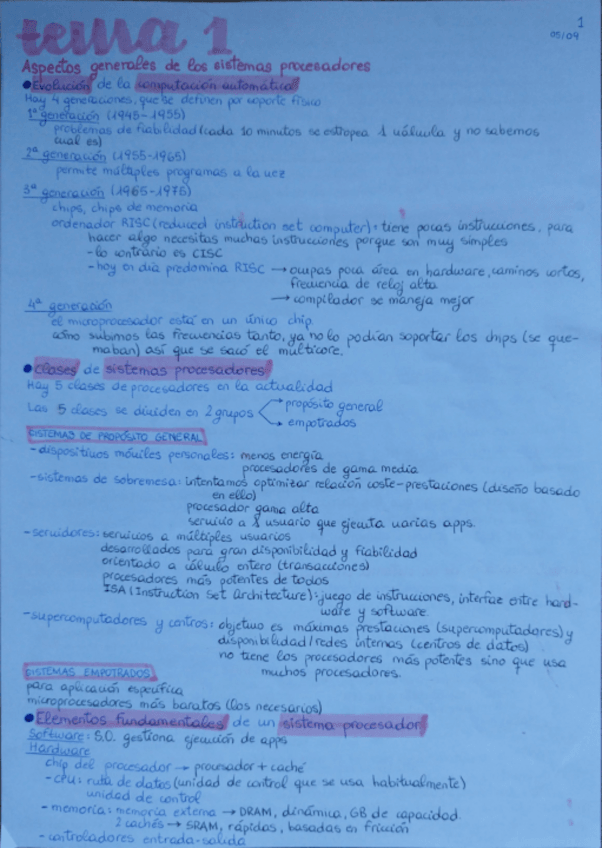 1
05/09
tema 1
Aspectos generales de los sistemas procesadores
●Evolución de la computación automática
Hay 4 generaciones, que se definen por soporte físico
1ª generación (1945-1955)
problemas de fiabilidad (cada 10 minutos se estropea 1 válvula y no sabemos
cual es)
2ª generación (1955-1965)
permite múltiples programas a la vez
3ª generación (1965-1975)
chips, chips de memoria
ordenador RISC (reduced instruction set computer): tiene pocas instrucciones, para
hacer algo necesitas muchas instrucciones porque son muy simples
- lo contrario es CISC
- hoy en día predomina RISC → ocupas poca área en hardware, caminos cortos,
frecuencia de reloj alta
→ compilador se maneja mejor
4ª generación
el microprocesador está en un único chip.
cómo subimos las frecuencias tanto, ya no lo podían soportar los chips (se que-
maban) así que se sacó el multicore.
●Clases de sistemas procesadores
Hay 5 clases de procesadores en la actualidad
Las 5 clases se dividen en 2 grupos → propósito general
→ empotrados
SISTEMAS DE PROPÓSITO GENERAL
- dispositivos móviles personales: menos energía
procesadores de gama media
- sistemas de sobremesa: intentamos optimizar relación coste-prestaciones (diseño basado
en ello)
procesador gama alta
servicio a 1 usuario que ejecuta varias apps.
- servidores: servicios a múltiples usuarios
desarrollados para gran disponibilidad y fiabilidad
orientado a cálculo entero (transacciones)
procesadores más potentes de todos
ISA (Instruction Set Architecture): juego de instrucciones, interfaz entre hard-
ware y software.
- supercomputadores y centros: objetivo es máximas prestaciones (supercomputadores) y
disponibilidad/redes internas (centros de datos)
no tiene los procesadores más potentes sino que usa
muchos procesadores.
SISTEMAS EMPOTRADOS
para aplicación específica
microprocesadores más baratos (los necesarios)
●Elementos fundamentales de un sistema procesador
Software: S.O. gestiona ejecución de apps
Hardware
chip del procesador → procesador + caché
- CPU: ruta de datos (unidad de control que se usa habitualmente)
unidad de control
- memoria: memoria externa → DRAM, dinámica, GB de capacidad.
2 cachés → SRAM, rápidas, basadas en fricción
- controladores entrada-salida